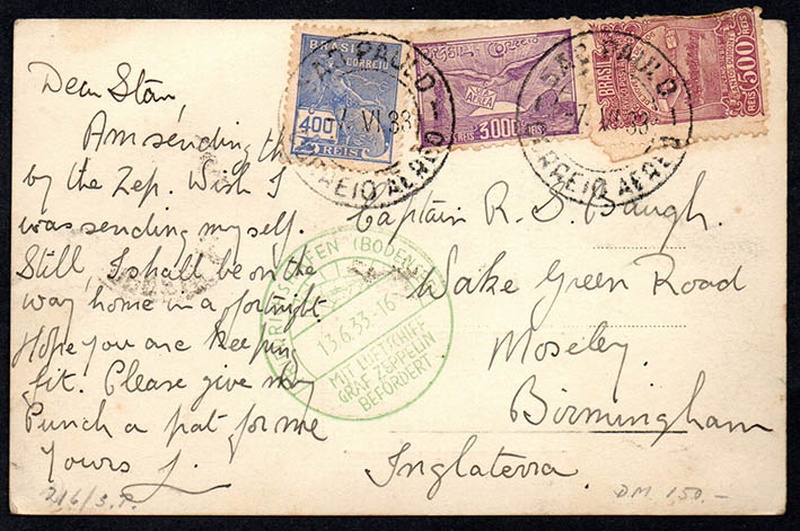 Dear Stan,
Am sending th
by the Zep. Wish I
was sending myself.
Still, I shall be on the
way home in a fortnight.
Hope you are keeping
fit. Please give my
Punch a pat for me
Yours J.
BRASIL
CORREIO
400
REIS
SAO PAULO
-7. VI 33
CORREIO AEREO
Brasil Correio
VIA AEREA
REIS 300 REIS
SAO PAULO
-7. VI 33
CORREIO AEREO
BRASIL
REIS 500 REIS
Captain R. D. Baugh.
Wake Green Road
Moseley.
Birmingham
Inglaterra.
FRIEDRICHSHAFEN (BODENSEE)
13.6.33.-16
MIT LUFTSCHIFF
GRAF ZEPPELIN
BEFÖRDERT
216/S.P.
DM 150.-